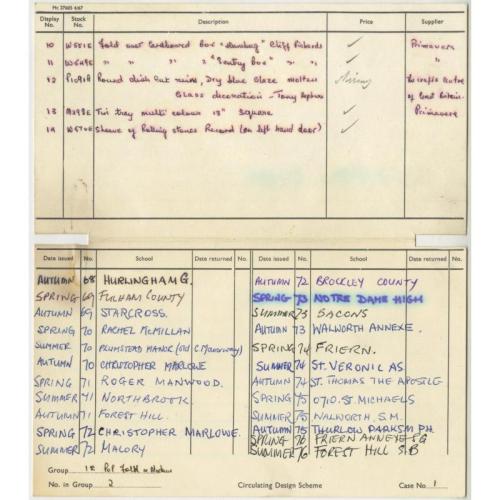 Mc 37085 6/67
Display No. Stock No. Description Price Supplier
10 W581E Fold over Cardboard box " " Cliff Richards ✓ Primavera
11 W549E " " " " "Sentry box" " " ✓ "
12 P1091A Round dish Cut ruins, Dry blue Glaze molten Missing The Crafts Centre
Glass decoration - Tony Hepburn of Great Britain
13 M298E Tin tray multi colour 13" Square ✓ Primavera
14 W570E Sleeve of Rolling Stones Record (on left hand door) ✓
Date issued No. School Date returned No. Date issued No. School Date returned No.
AUTUMN 68 HURLINGHAM G. AUTUMN 72 BROCKLEY COUNTY
SPRING 69 FULHAM COUNTY SPRING 73 NOTRE DAME HIGH
AUTUMN 69 STARCROSS. SUMMER 73 BACONS
SPRING 70 RACHEL McMILLAN AUTUMN 73 WALWORTH ANNEXE.
SUMMER 70 PLUMSTEAD MANOR (Old C. ) SPRING 74 FRIERN.
AUTUMN 70 CHRISTOPHER MARLOWE SUMMER 74 ST. VERONICAS
SPRING 71 ROGER MANWOOD. AUTUMN 74 ST. THOMAS THE APOSTLE
SUMMER 71 NORTHBROOK. SPRING 75 ST. MICHAELS
AUTUMN 71 FOREST HILL. SUMMER 75 WALWORTH, S.M.
SPRING 72 CHRISTOPHER MARLOWE. AUTUMN 75 THURLOW PARK SM PH
SUMMER 72 MALORY SPRING 76 FRIERN ANNEXE SG
SUMMER 76 FOREST HILL S.B
Group
No. in Group 2 Circulating Design Scheme Case No 1